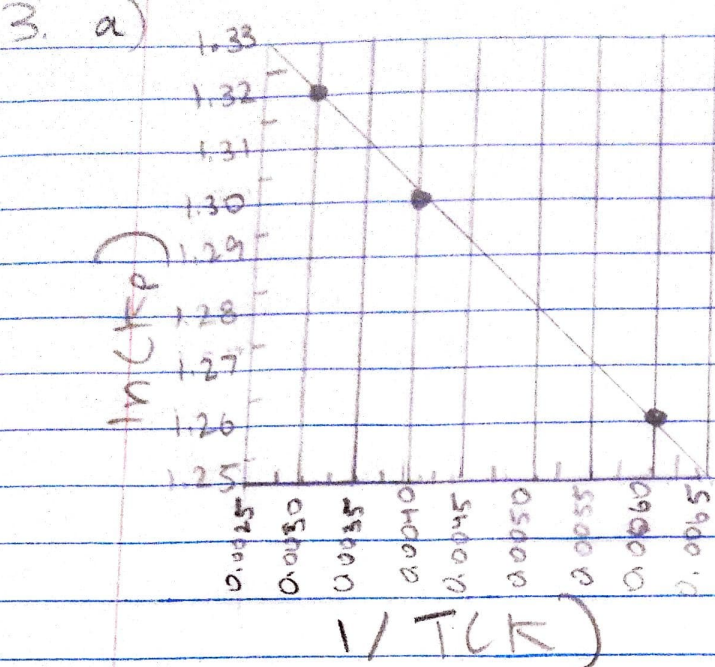 3. a)
1.33
1.32
1.31
1.30
1.29
1.28
1.27
1.26
1.25
ln(Kp)
0.0025
0.0030
0.0035
0.0040
0.0045
0.0050
0.0055
0.0060
0.0065
1/T(K)